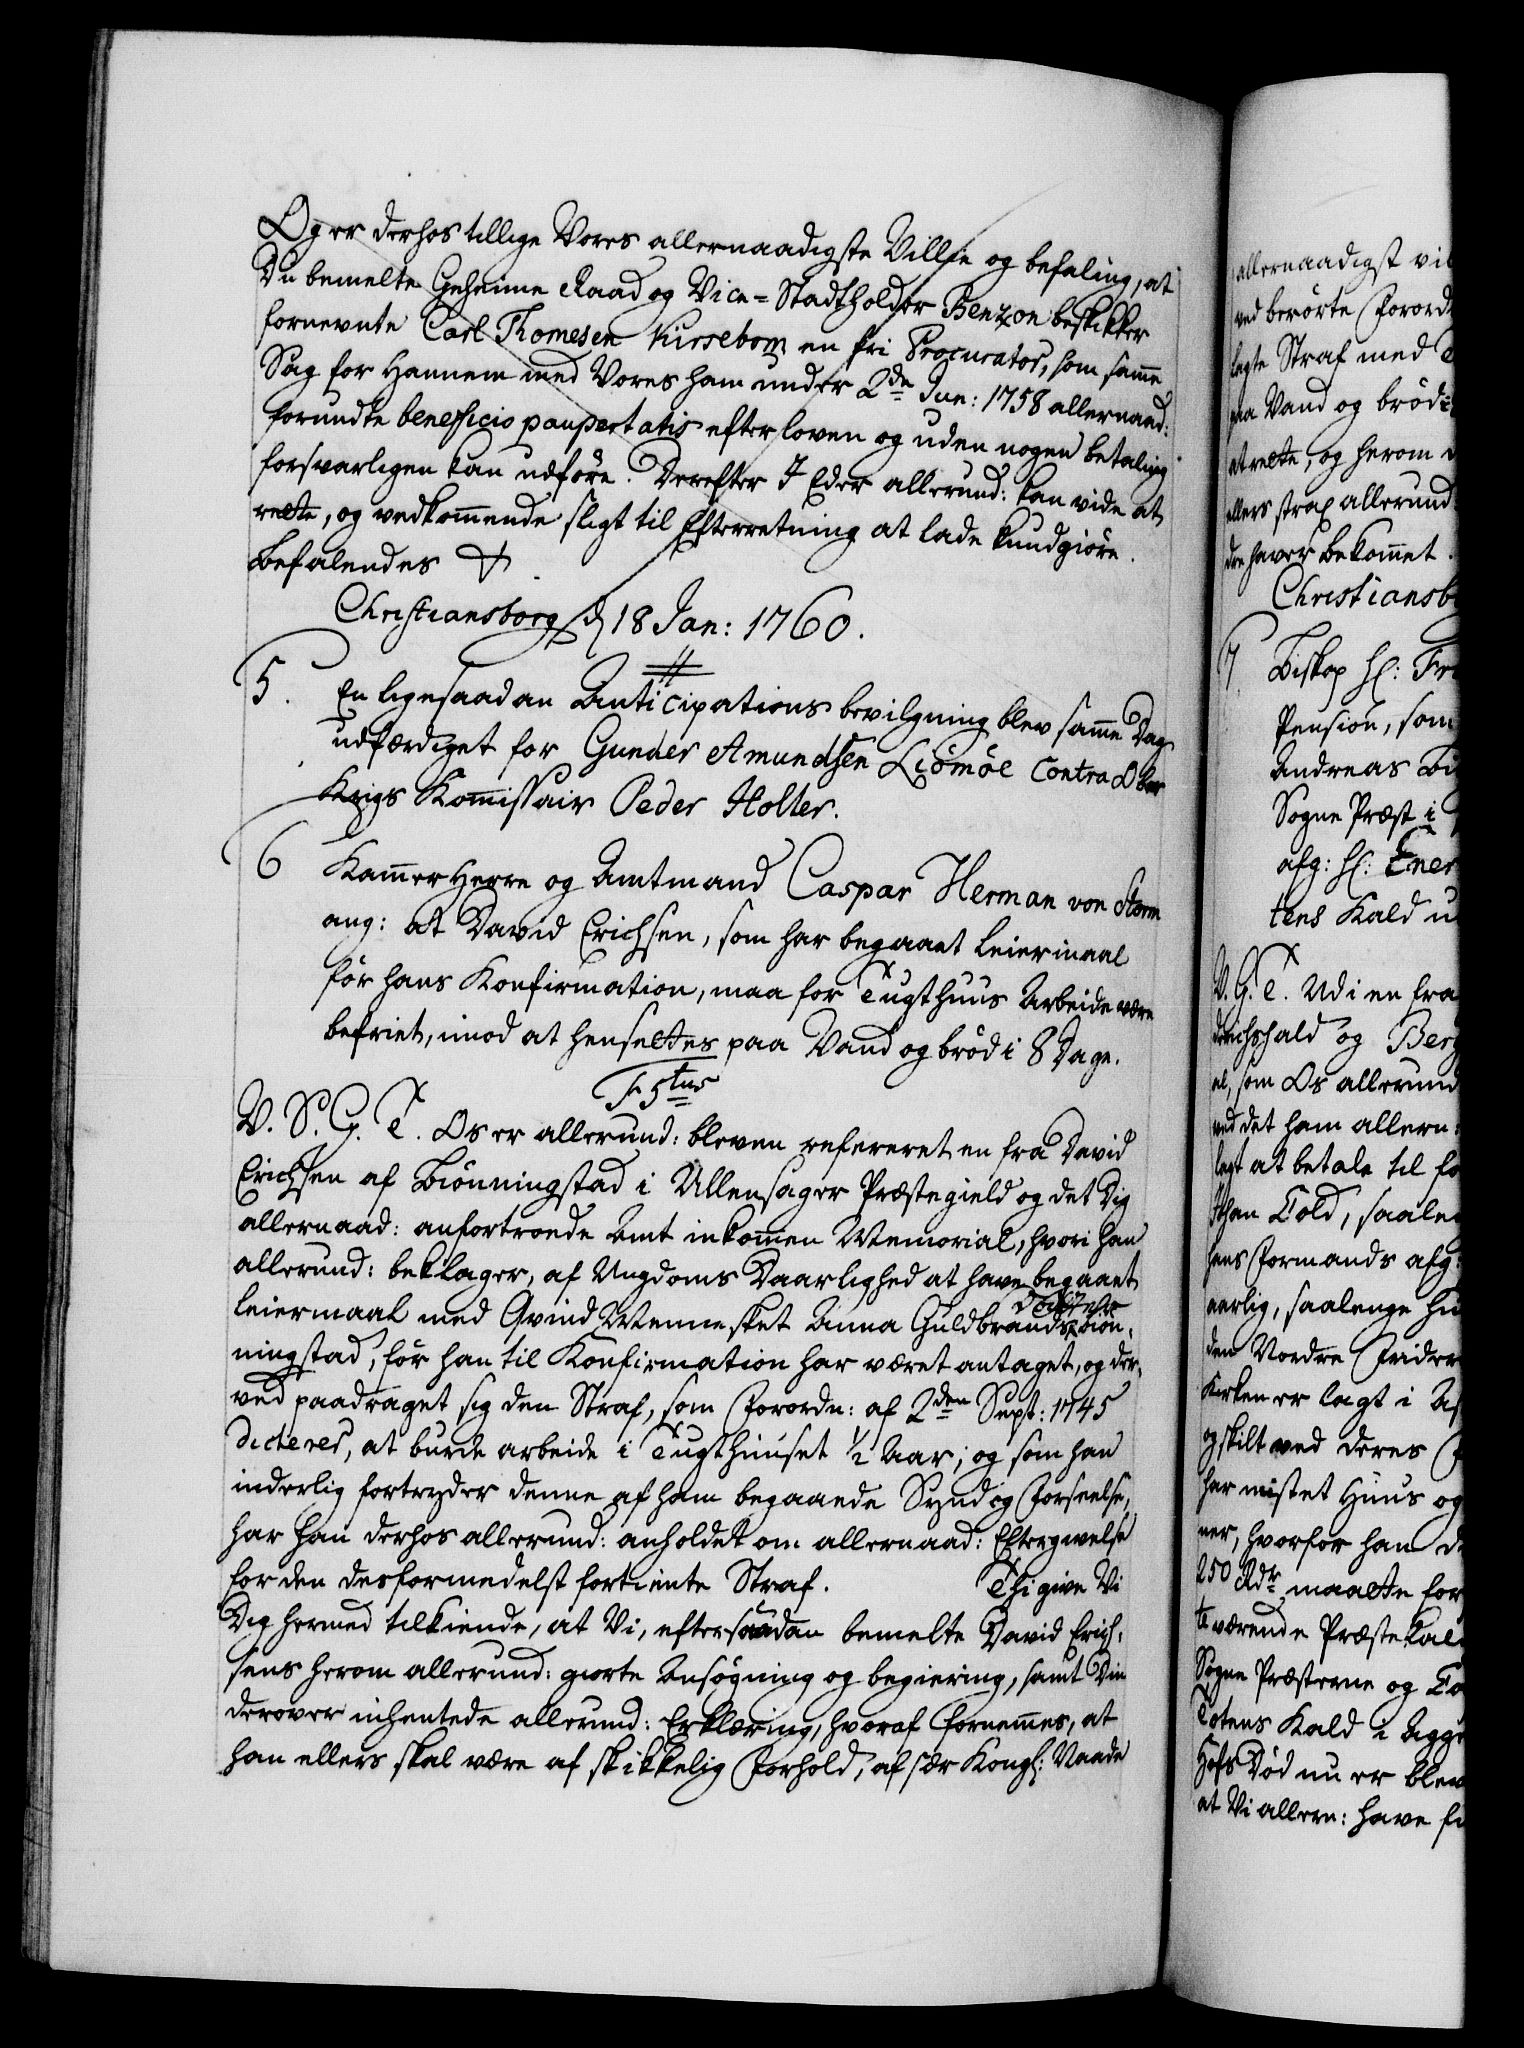 Og er derhos tillige Vores allernaadigste Villje og befaling, at
Du bemelte Geheime Raad og Vice-Stadtholder Benzon beskikker
fornevnte Carl Thomesen Kirsebom en fri Procurator, som samme
Sag for Hannem med Vores ham under 2de Jun: 1758 allernaad:
forundte beneficio paupertatis efter loven og uden nogen betaling
forsvarligen kan udføre. Derefter I Eder allerund: kan vide at
rette, og vedkommende sligt til Efterretning at lade kundgiøre.
Befalendes
Christiansborg d 18 Jan: 1760.
5. En ligesaadan Anticipations bevilgning blev samme Dag
udfærdiget for Gunder Amundsen Liømøe Contra Ober
Krigs Kommissair Peder Holter.
6 Kammer Herre og Amtmand Caspar Herman von Storm
ang: at David Erichsen, som har begaaet Leiermaal
før hans Konfirmation, maa for Tugthuus Arbeide være
befriet, imod at hensettes paa Vand og brød i 8 Dage.
F 5tus
V. S. G. T. Os er allerund: bleven refereret en fra David
Erichsen af Biønningstad i Ullensager Præstegield og det Dig
allernaad: anfortroede Amt inkommen Memorial, hvori han
allerund: beklager, af Ungdoms Daarlighed at have begaaet
Leiermaal med Qvind Mennesket Anna Guldbrands Datter Biøn-
ningstad, før han til Konfirmation har været antaget, og der-
ved paadraget sig den Straf, som Forordn: af 2den Sept: 1745
dicterer, at burde arbeide i Tugthuuset 1/2 Aar; og som han
inderlig fortryder denne af ham begaaede Synd og Forseelse,
har han derhos allerund: anholdet om allernaad: Eftergivelse
for den desformedelst fortiente Straf. Thi give Vi
Dig hermed tilkiende, at Vi, eftersaadan bemelte David Erich-
sens herom allerund: giorte Ansøgning og begiering, samt Din
derover inhentede allerund: Erklæring, hvoraf fornemmes, at
han ellers skal være af skikkelig Forhold, af sær Kongl: Naade
allernaadigst vil
ved berørte Forord
lagte Straf med
paa Vand og brød i
at rette, og herom
ellers strax allerund
dre haver bekommet.
Christiansb
7. Biskop Hr: Fr
Pension, som
Andreas Bu
Sogne Præst i
afg: Hr: Ener
tens Kald u
V. G. T. Udi en fra
derichshald og Berg
el, som Os allerund
ved det ham allern:
lagt at betale til fo
than Told, saaleng
hans Formands afg:
aarlig, saalenge hu
den Nordre Frider
Kirken er lagt i As
og skilt ved deres
har mistet Huus og
ner, hvorfor han de
250 Rdr maatte for
te værende Præstekal
Sogne Præsterne og To
Totens Kald i Agge
Hofs Død nu er blev
at Vi allern: have fu